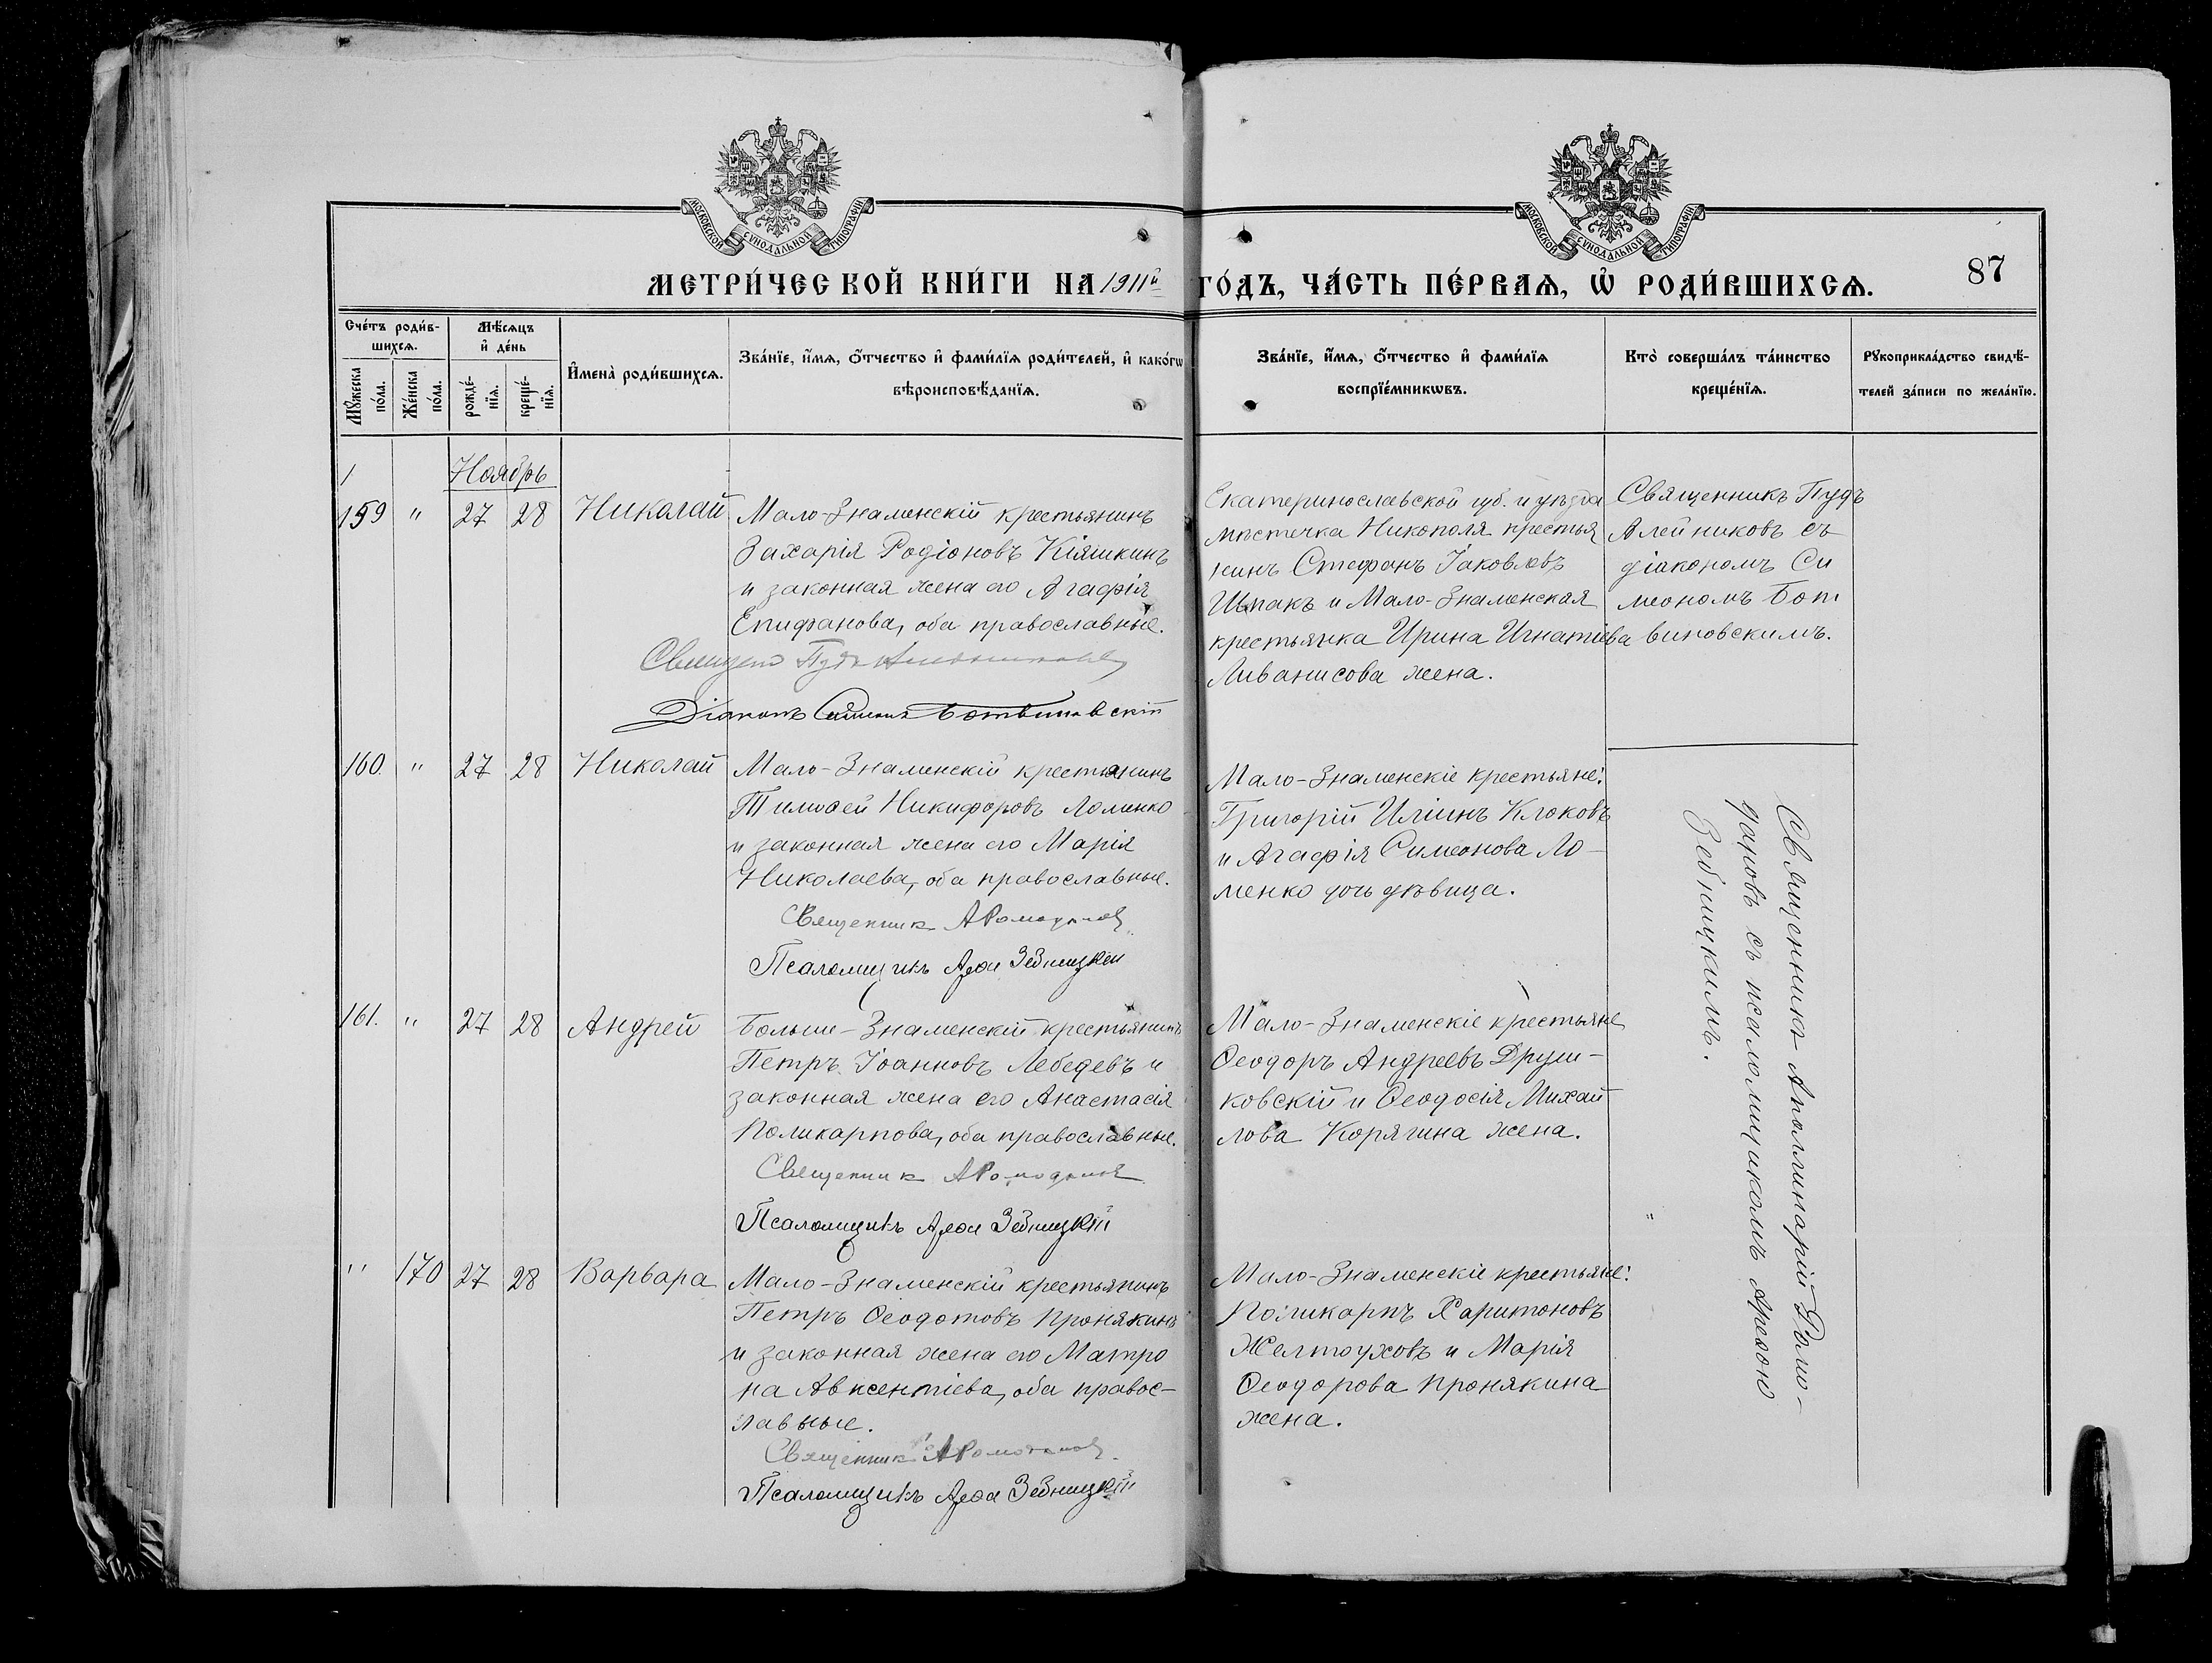 МОСКОВСКОЙ СѴНОДАЛЬНОЙ ТИПОГРАФІИ
МОСКОВСКОЙ СѴНОДАЛЬНОЙ ТИПОГРАФІИ
МЕТРИ́ЧЕСКОЙ КНИ́ГИ НА 1911й ГО́ДЪ, ЧА́СТЬ ПЕ́РВАѦ, Ѡ҆ РОДИ́ВШИХСѦ.
87
Сче́тъ роди́в-
шихсѧ.
Мꙋ́жеска
по́ла.
Же́нска
по́ла.
Мѣ́сѧцъ
и҆ де́нь
рожде́-
нїѧ.
креще́-
нїѧ.
И҆мена̀ роди́вшихсѧ.
Зва́нїе, и҆́мѧ, ѻ҆́тчество и҆ фами́лїѧ роди́телей, и҆ како́гѡ
вѣроисповѣ́данїѧ.
Зва́нїе, и҆́мѧ, ѻ҆́тчество и҆ фами́лїѧ
воспрїе́мникѡвъ.
Кто̀ соверша́лъ та́инство
креще́нїѧ.
Рꙋкоприкла́дство свидѣ́-
телей за́писи по жела́нїю.
Ноябрь
159 " 27 28 Николай
Мало-Знаменскій крестьянинъ
Захарія Родіоновъ Кіяшкинъ
и законная жена его Агафія
Епифанова, оба православные.
Діаконъ Симеонъ Ботвиновскій
Екатеринославской губ. и уѣзда
мѣстечка Никополя крестья
нинъ Стефанъ Іаковлевъ
Шпакъ и Мало-Знаменская
крестьянка Ирина Игнатіева
Ливанисова жена.
Священникъ Пудъ
Алейниковъ съ
діакономъ Си
меономъ Бот
виновскимъ.
160. " 27 28 Николай
Мало-Знаменскій крестьянинъ
Тимоѳей Никифоровъ Ломенко
и законная жена его Марія
Николаева, оба православные.
Священник А Ромоданов
Псаломщикъ Ареѳа Зебницкій
Мало-Знаменскіе крестьяне:
Григорій Иліинъ Клоковъ
и Агафія Симеонова Ло-
менко дочь дѣвица.
Священникъ Аполлинарій Ромо-
дановъ съ псаломщикомъ Ареѳою
Зебницкимъ.
161. " 27 28 Андрей
Больше-Знаменскій крестьянинъ
Петръ Іоанновъ Лебедевъ и
законная жена его Анастасія
Поликарпова, оба православные.
Священник А Ромоданов
Псаломщикъ Ареѳа Зебницкій
Мало-Знаменскіе крестьяне
Ѳеодоръ Андреевъ Друш-
ковскій и Ѳеодосія Михай
лова Корягина жена.
" 170 27 28 Варвара
Мало-Знаменскій крестьянинъ
Петръ Ѳеодотовъ Пронякинъ
и законная жена его Матро
на Авксентіева, оба правос-
лавные.
Священник А Ромоданов
Псаломщикъ Ареѳа Зебницкій
Мало-Знаменскіе крестьяне:
Поликарпъ Харитоновъ
Желтоуховъ и Марія
Ѳеодорова Пронякина
жена.